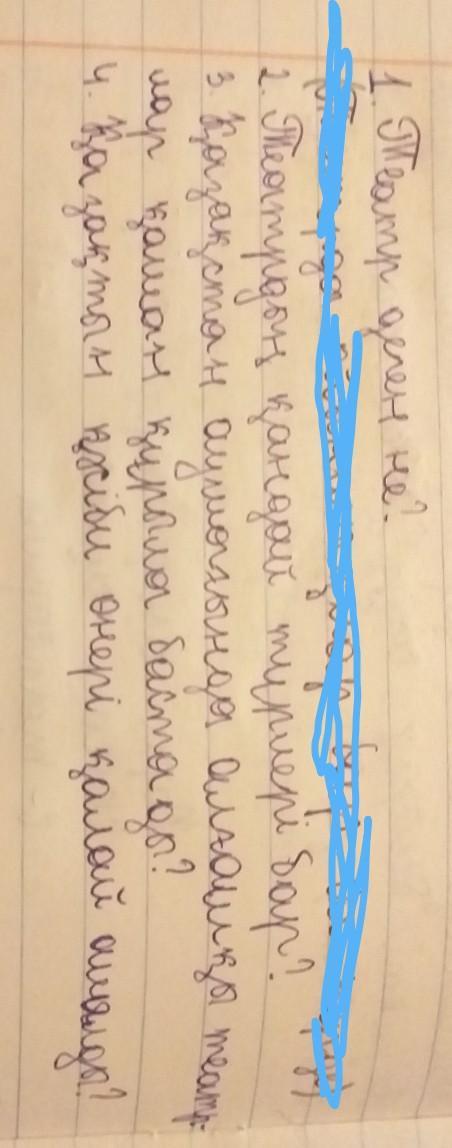 1. Театр деген не?
2. Театрдың қандай түрлері бар?
3. Қазақстан аумағында алғашқы театр-
лар қашан құрыла бастады?
4. Қазақтын кәсіби өнері қалай ашылды?